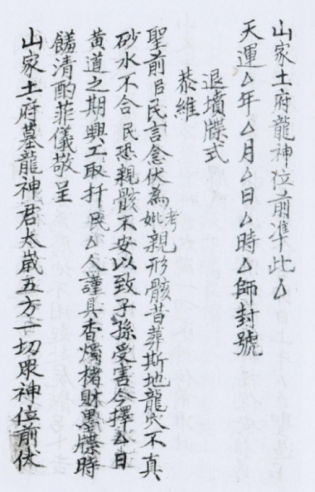 山家土府龍神位前準此△
天運△年△月△日△時△師封號
退墳牒式
恭維
聖前臣民言念伏為考妣親形骸昔葬斯地龍穴不真
砂水不合民恐親骸不安以致子孫受害今擇△日
黃道之期興工取扦民△人謹具香燭楮財墨牒時
饈清酌菲儀敬呈
山家土府墓龍神君太歲五方一切眾神位前伏